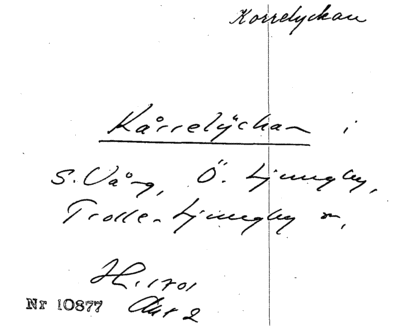 Korrelyckan
Kårrelÿckan i
S. Vång, Ö. Ljungby,
Trolle-Ljungby sn,
H. 1701
Akt 2
Nr 10877